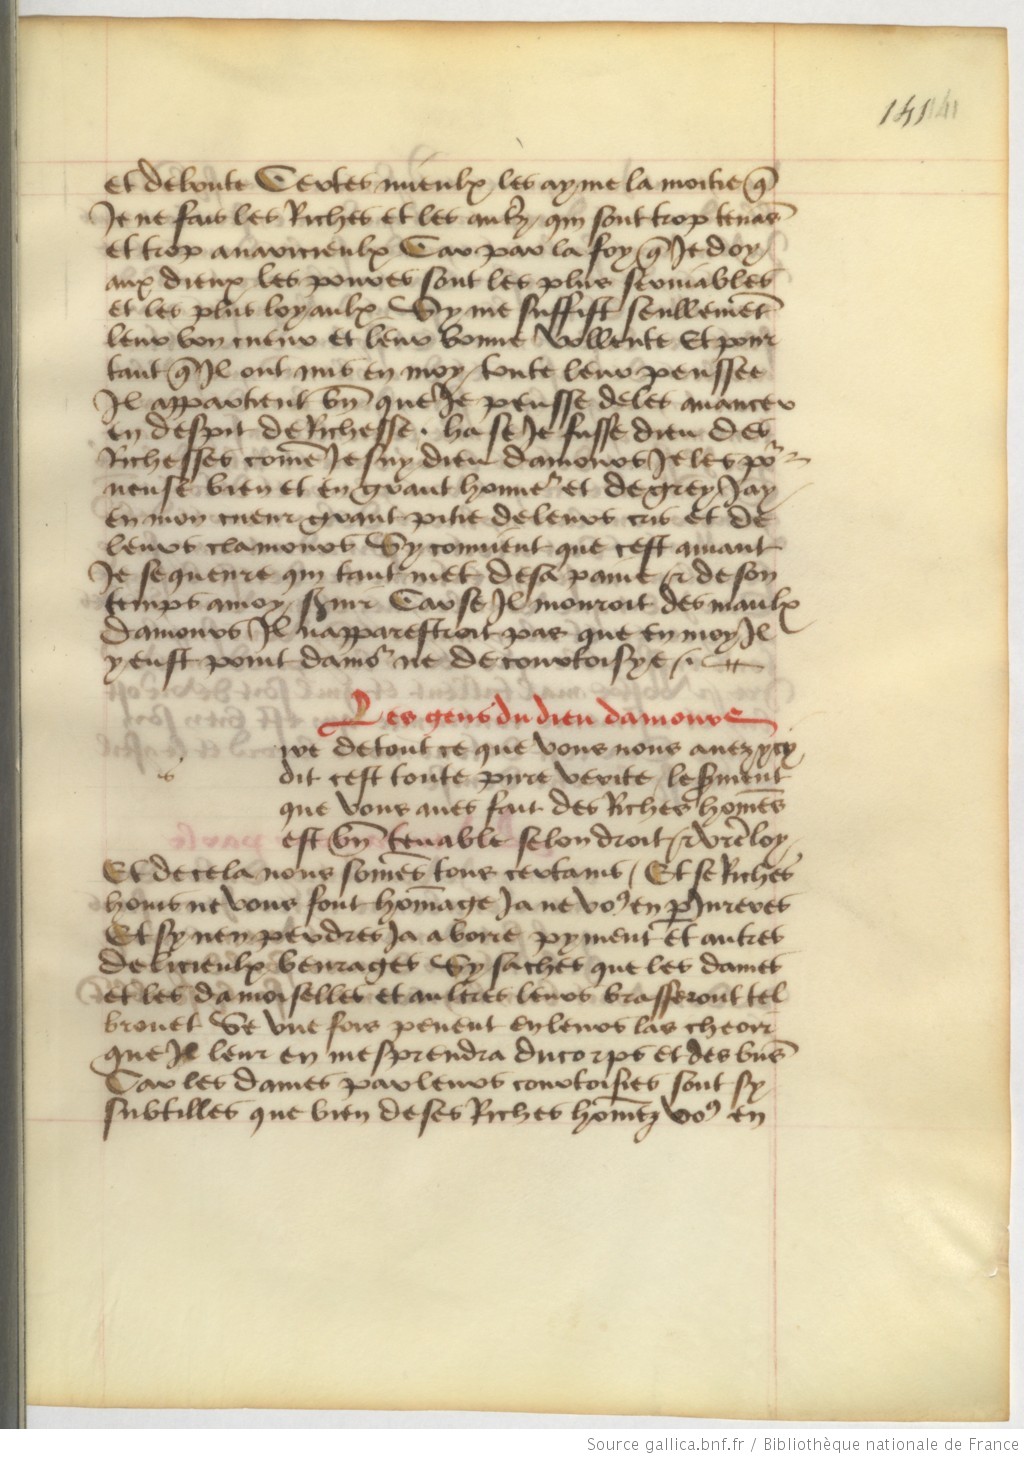 141 141
et deboute Certes mieulx les ayme la moitie q̃
Je ne fais les Riches et les autr̃ qui sont trop tenãs
et trop auaricieulx Car par la foy q̃ Je doy
aux dieux les poures sont les plus seruiables
et les plus loyaulx Sy me suffist seullemẽt
leur bon cueur et leur bonne vollente Et pour
tant q̃ Il ont mis en moy toute leur penssee
Il appartient bñ que Je pensse de les auancer
en despit de Richesse. ha se Je fusse dieu des
Richesses come Je suy dieu damours Je les po͛
ueuse bien et en grant honne͛ et de grey Jay
en mon cueur grant pitie de leurs cris et de
leurs clamours Sy conuient que cest amant
Je sequeure qui tant met de sa paine et de son
temps a moy shuir Car se Il mouroit des maulx
damours Il napparestroit pas que en moy Il
y eust point damo͛ ne de courtoisye
Les gens du dieu damours
s
ire de tout ce que vous nous auez ycy
dit cest toute pure verite le sment
que vous aues fait des Riches homẽs
est bñ tenable selon droit et vrẽ loy
Et de cela nous somẽs tous certains Et se Riches
homs ne vous font homãge Ja ne vo᾽ en pJureres
Et sy nen perdres Ja a boire pyment et autres
delicieulx beurages Sy saches que les dames
et les damoiselles et aultres leurs brasseront tel
brouet Se vne fois peuent en leurs las cheoir
que Il leur en mesprendra du corps et des biẽs
Car les dames par leurs courtoisies sont sy
subtilles que bien de ses Riches homẽz vo᾽ en
Source gallica.bnf.fr / Bibliothèque nationale de France